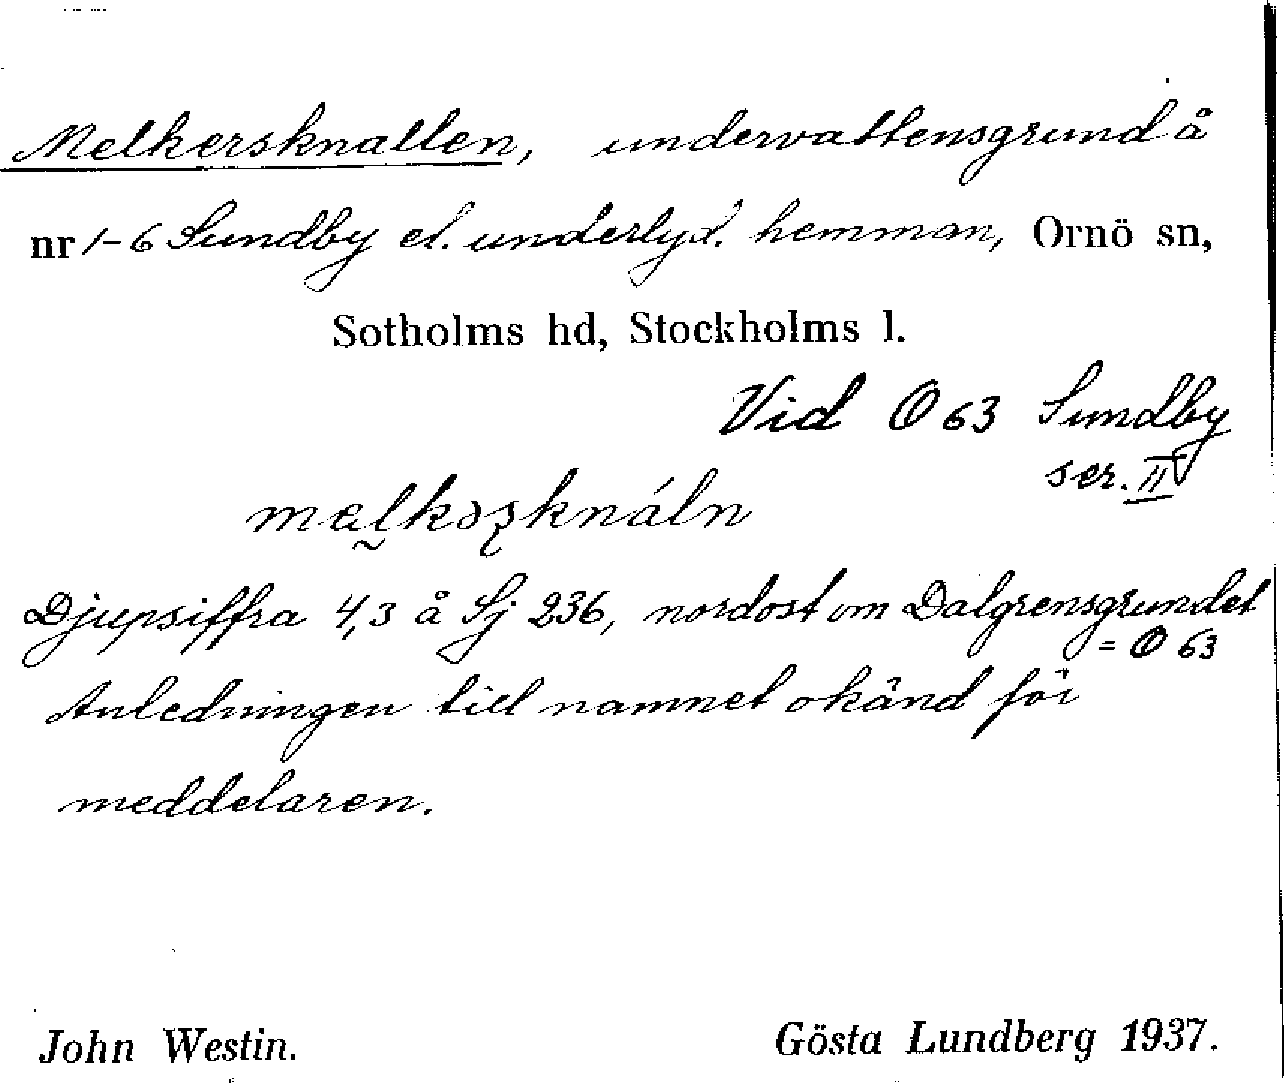 Melkersknallen, undervattensgrund å
nr 1-6 Sundby el. underlyd. hemman, Ornö sn,
Sotholms hd, Stockholms l.
Vid O 63 Sundby
ser. II
Djupsiffra 4,3 å Sj 236, nordost om Dalgrensgrundet
= O 63
Anledningen till namnet okänd för
meddelaren.
John Westin. Gösta Lundberg 1937.